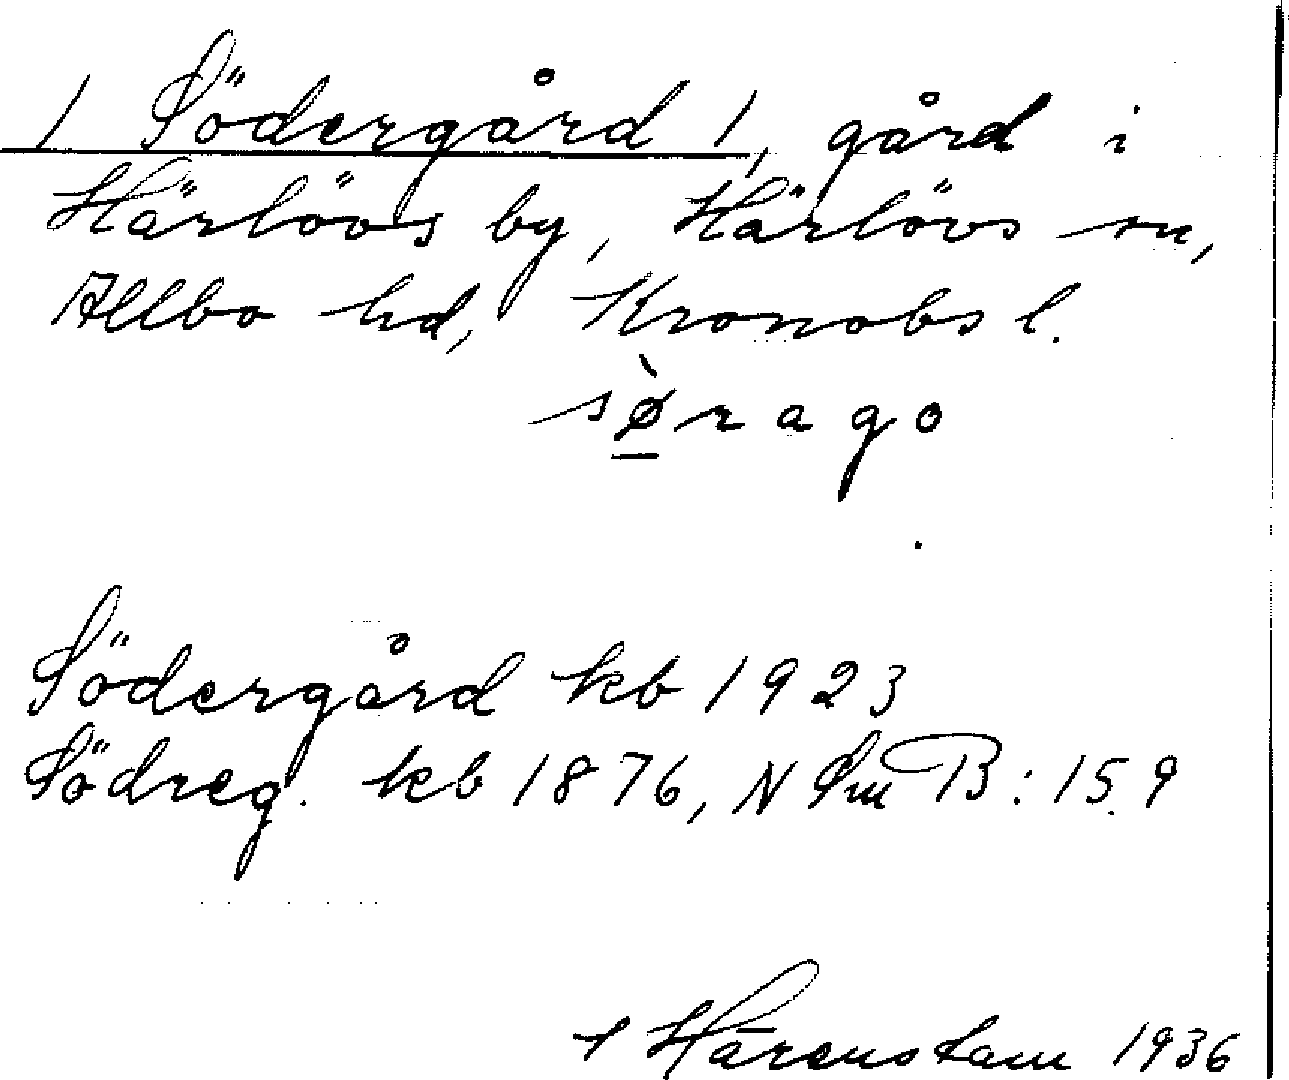 / Södergård /, gård i
Härlövs by, Härlövs sn,
Allbo hd, Kronobs l.
sø̀rago
Södergård kb 1923
Södreg. kb 1876, N Sm B: 159
Härenstam 1936